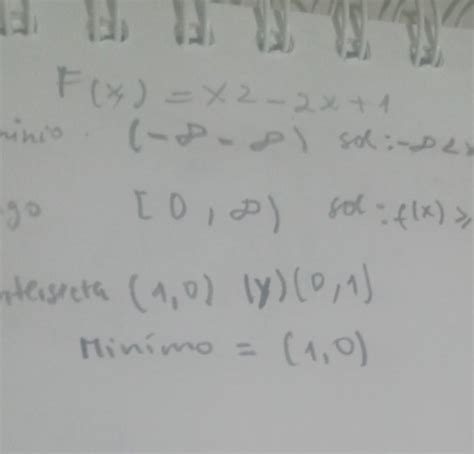 F(x) = x2 - 2x + 1
minio. (-∞ - ∞) sol: -∞ < x
go [0, ∞) sol: f(x) ≥
ntersecta (1,0) (y)(0,1)
Minimo = (1,0)